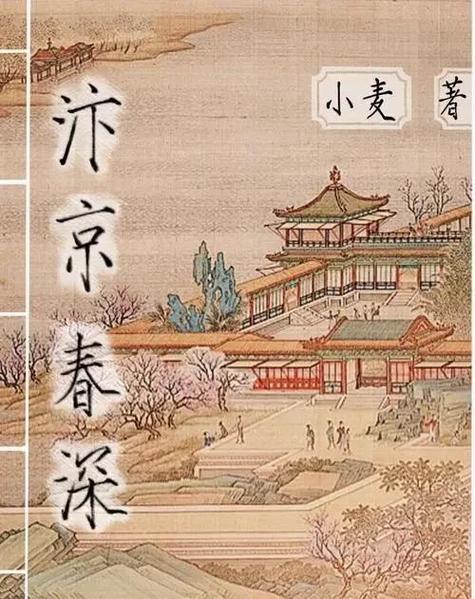 汴京春深
小麦 著